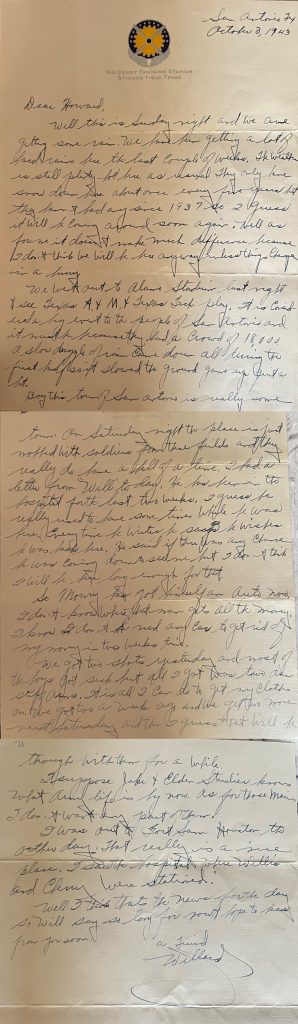 San Antonio Tex
October 3, 1943
AIR DEPOT TRAINING STATION
STINSON FIELD, TEXAS
Dear Howard,
Well this is Sunday night and we are
getting some rain. We have been getting a lot of
hard rains here the last couple of weeks. The weather
is still plenty hot here as usual. They only have
snow down here about once every five years but
they haven't had any since 1937 so I guess
it will be coming around soon again. Well as
for me it doesn't make much difference because
I don't think we will be here anyway unless things change
in a hurry.
We went out to Alamo Stadium last night
to see Texas A & M & Texas Tech play. It is
a big event to the people of San Antonio and
it must be because they had a crowd of 18000
A slow drizzle of rain came down all during the
first half so it slowed the game up quite a
bit.
Boy this town of San Antonio is really some
town. On Saturday night the place is just
mobbed with soldiers from these fields and they
really do have a hell of a time. I had a
letter from Will today. He has been in the
hospital for the last two weeks. I guess he
really used to have some times while he was
here. Every time he writes he says he wishes
he was back here. He said if there was any chance
he was coming down to see me but I don't think
I will be here long enough for that.
So Moury has got himself an auto now.
I don't know where that man gets all the money.
I know I don't need any car to get rid of
my money in two weeks time.
We got two shots yesterday and most of
the boys got sick but all I got was two
stiff arms. It is all I can do to get my clothes
on. We got two a week ago and we get two more
next Saturday and then I guess that will be
though with them for a while.
I suppose Jake & Elder Studier knows
what Army life is by now. As for those Marines
I don't want any part of them.
I was out to Fort Sam Houston the
other day. That really is a nice
place. I saw the hospital where Willis
and were stationed.
Well I that's the news for the day
so will say so long for now & hope to hear
from you soon.
a friend
Willard